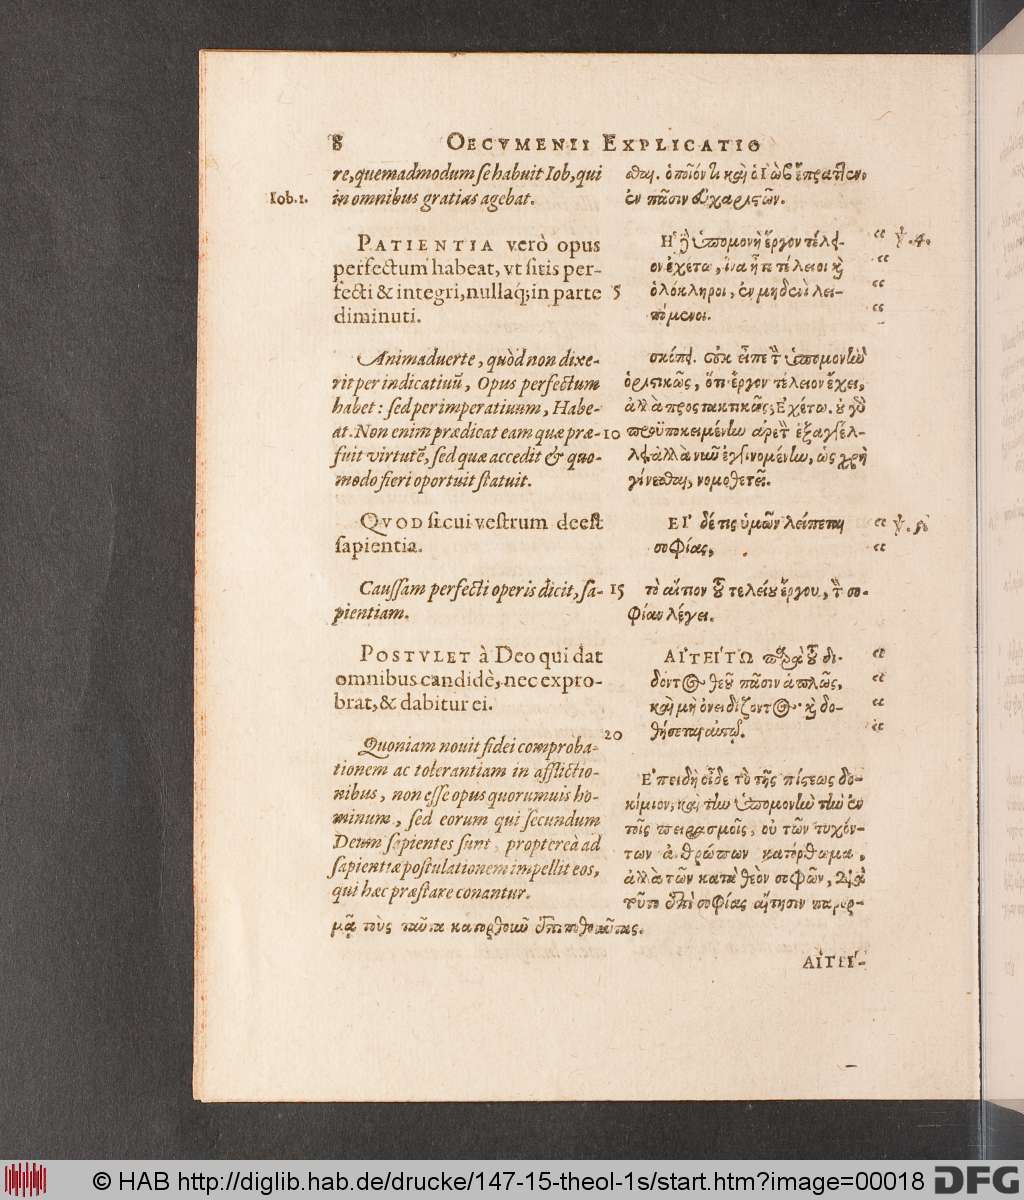 8 OECVMENII EXPLICATIO
re, quemadmodum se habuit Iob, qui
Iob. 1. in omnibus gratias agebat.
PATIENTIA verò opus
perfectum habeat, vt sitis per-
fecti & integri, nullaq; in parte 5
diminuti.
Animaduerte, quòd non dixe-
rit per indicatiuũ, Opus perfectum
habet: sed per imperatiuum, Habe-
at. Non enim prædicat eam quæ præ- 10
fuit virtutẽ, sed quæ accedit & quo-
modo fieri oportuit statuit.
QVOD si cui vestrum deest
sapientia.
Caussam perfecti operis dicit, sa- 15
pientiam.
POSTVLET à Deo qui dat
omnibus candidè, nec expro-
brat, & dabitur ei.
20
Quoniam nouit fidei comproba-
tionem ac tolerantiam in afflictio-
nibus, non esse opus quorumuis ho-
minum, sed eorum qui secundum
Deum sapientes sunt, propterea ad
sapientiæ postulationem impellit eos,
qui hæc præstare conantur.
σθαι. ὁποῖόν τι καὶ ὁ Ἰὼβ ἔπραττεν,
ἐν πᾶσιν εὐχαριστῶν.
Ἡ δὲ ὑπομονὴ ἔργον τέλει- “ ℣. 4.
ον ἐχέτω, ἵνα ἦτε τέλειοι καὶ “
ὁλόκληροι, ἐν μηδενὶ λει- “
πόμενοι. “
σκόπει. οὐκ εἶπε τὴν ὑπομονὴν
ὁριστικῶς, ὅτι ἔργον τέλειον ἔχει,
ἀλλὰ προστακτικῶς, Ἐχέτω. οὐ γὰρ
προϋποκειμένην ἀρετὴν ἐξαγγέλ-
λει ἀλλὰ νῦν ἐγγινομένην, ὡς χρὴ
γίνεσθαι, νομοθετεῖ.
ΕΙ' δέ τις ὑμῶν λείπεται “ ℣. 5.
σοφίας, “
τὸ αἴτιον τοῦ τελείου ἔργου, τὴν σο-
φίαν λέγει.
ΑΙ'ΤΕΙ'ΤΩ παρὰ τοῦ δι- “
δόντος θεοῦ πᾶσιν ἁπλῶς, “
καὶ μὴ ὀνειδίζοντος· καὶ δο- “
θήσεται αὐτῷ. “
Ἐπειδὴ οἶδε τὸ τῆς πίστεως δο-
κίμιον, καὶ τὴν ὑπομονὴν τὴν ἐν
τοῖς πειρασμοῖς, οὐ τῶν τυχόν-
των ἀνθρώπων κατόρθωμα,
ἀλλὰ τῶν κατὰ θεὸν σοφῶν, διὰ
τοῦτο ἐπὶ σοφίας αἴτησιν παρορ-
μᾷ τοὺς ταῦτα κατορθοῦν ἐπιποθοῦντας.
ΑΙ'ΤΕΙ'-
© HAB http://diglib.hab.de/drucke/147-15-theol-1s/start.htm?image=00018 DFG